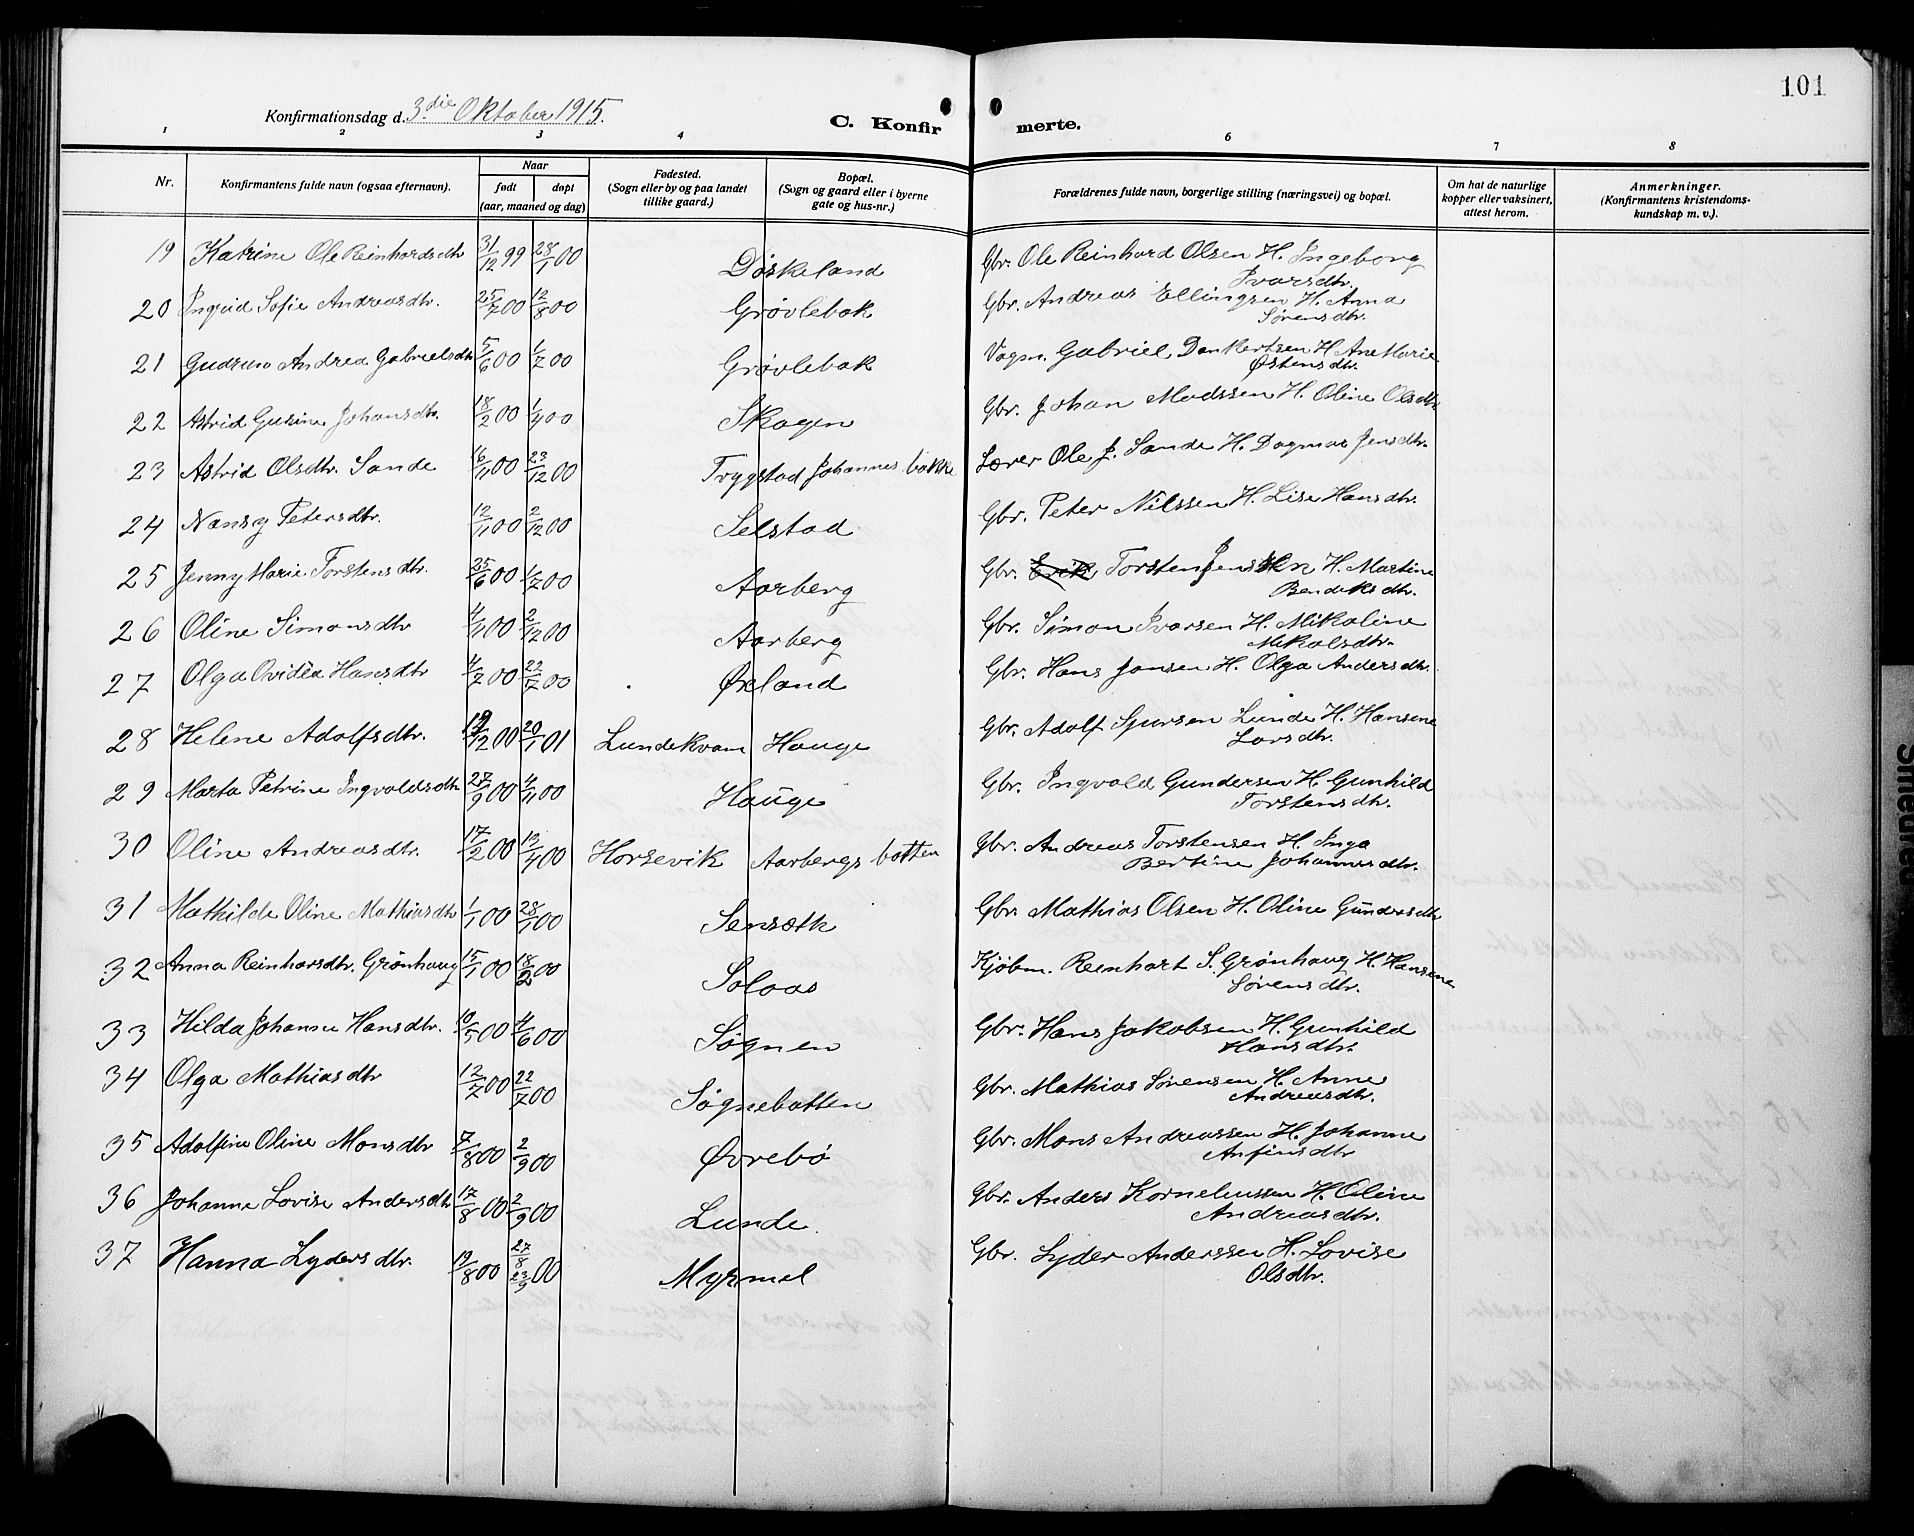 101
Konfirmationsdag d. 3.die Oktober 1915.
C. Konfirmerte.
1 2 3 4 6 7 8
Nr.
Konfirmantens fulde navn (ogsaa efternavn).
Naar
født
døpt
(aar, maaned og dag)
Fødested.
(Sogn eller by og paa landet
tillike gaard.)
Bopæl.
(Sogn og gaard eller i byerne
gate og hus-nr.)
Forældrenes fulde navn, borgerlige stilling (næringsvei) og bopæl.
Om hat de naturlige
kopper eller vaksinert,
attest herom.
Anmerkninger.
(Konfirmantens kristendoms-
kundskap m. v.).
19 Katrine Ole Reinhardsdtr 31/12 99 28/1 00 Døskeland Gbr. Ole Reinhard Olsen H. Ingeborg
Ivarsdtr.
20 Ingrid Sofie Andreasdtr. 25/7 00 12/8 00 Grøvlebak Gbr. Andreas Ellingsen H. Anna
Sørensdtr.
21 Gudrun Andrea Gabrielsdtr 5/6 00 1/7 00 Grøvlebak Vogm. Gabriel Dankertsen H. Ane Marie
Østensdtr.
22 Astrid Gurine Johansdtr. 18/2 00 1/4 00 Skogen Gbr. Johan Madssen H. Oline Olsdtr
23 Astrid Olsdtr. Sande 16/11 00 23/12 00 Trygstad Johannes bakke Lærer Ole J. Sande H. Dagmar Jensdtr.
24 Nansy Petersdtr. 12/11 00 2/12 00 Selstad Gbr. Peter Nilssen H. Lise Hansdtr.
25 Jenny Marie Torstensdtr. 25/6 00 1/7 00 Aarberg Gbr. Erik Torsten Jensen H. Martine
Bendiksdtr.
26 Oline Simonsdtr 4/11 00 2/12 00 Aarberg Gbr. Simon Ivarsen H. Mikaline
Mikalsdtr.
27 Olga Ovidea Hansdtr 4/7 00 22/7 00 Øxland Gbr. Hans Jansen H. Olga Andersdtr.
28 Helene Adolfsdtr. 12/12 00 20/1 01 Lundekvam Hauge Gbr. Adolf Sjursen Lunde H. Hansine
Larsdtr.
29 Marta Petrine Ingvaldsdtr 27/9 00 4/11 00 Hauge Gbr. Ingvald Gundersen H. Gunhild
Torstensdtr.
30 Oline Andreasdtr. 17/2 00 13/4 00 Horsevik Aarbergsbotten Gbr. Andreas Torstensen H. Inga
Bertine Johannesdtr.
31 Mathilde Oline Mathiasdtr 1/1 00 28/1 00 Senseth Gbr. Mathias Olsen H. Oline Gundersdtr
32 Anna Reinharsdtr. Grønhaug 15/1 00 18/2 00 Solaas Kjøbm. Reinhart S. Grønhaug H. Hansine
Sørensdtr.
33 Hilda Johanne Hansdtr. 10/5 00 4/6 00 Søgnen Gbr. Hans Jakobsen H. Gunhild
Hansdtr.
34 Olga Mathiasdtr 12/7 00 22/7 00 Søgnebotten Gbr. Mathias Sørensen H. Anne
Andreasdtr.
35 Adolfine Oline Monsdtr 7/8 00 2/9 00 Øvrebø Gbr. Mons Andreassen H. Johanne
Anfinsdtr
36 Johanne Lovise Andersdtr 17/8 00 2/9 00 Lunde. Gbr. Anders Korneliussen H. Oline
Andreasdtr.
37 Hanna Lydersdtr. 19/8 00 27/8 23/9 00 Myrmel Gbr. Lyder Anderssen H. Lovise
Olsdtr.